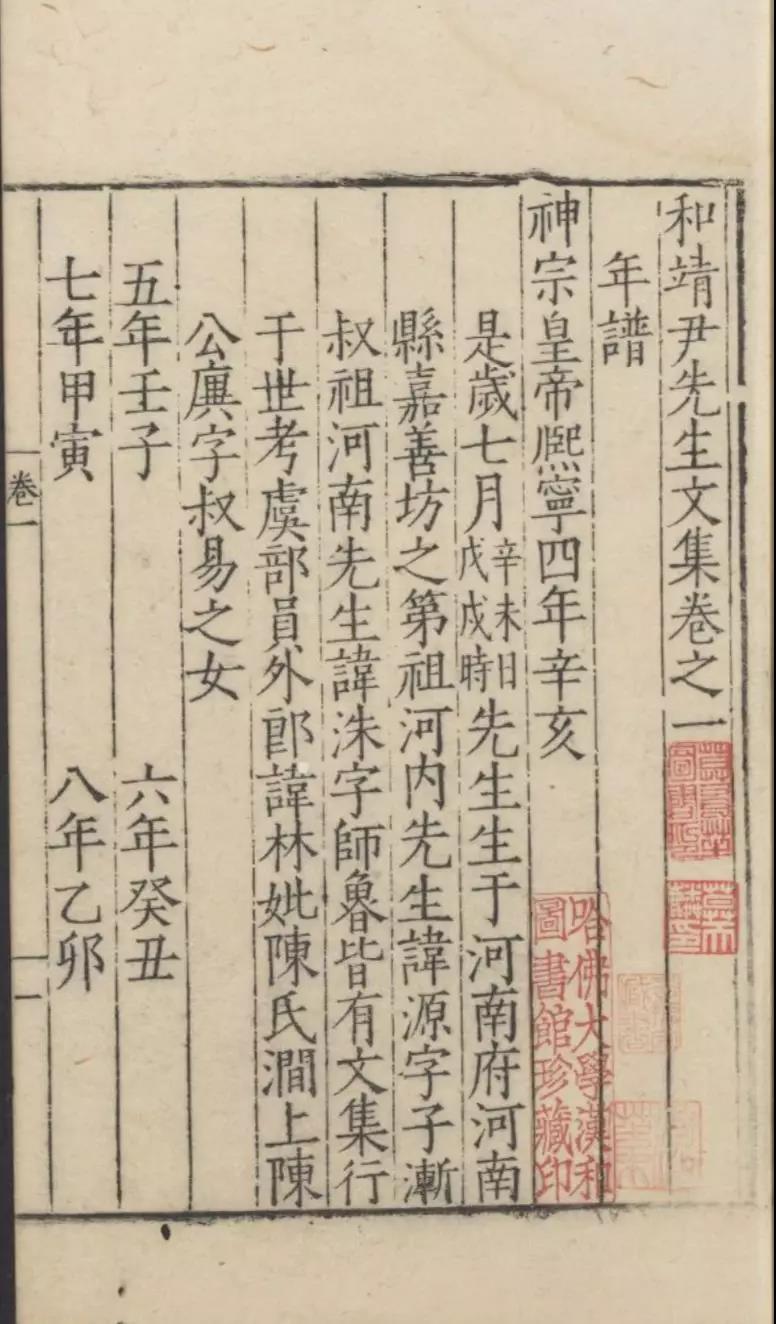 和靖尹先生文集卷之一
年譜
神宗皇帝熈寧四年辛亥
是歲七月辛未日戊戌時先生生于河南府河南
縣嘉善坊之第祖河内先生諱源字子漸
叔祖河南先生諱洙字師魯皆有文集行
于世考虞部員外郎諱林妣陳氏澗上陳
公廙字叔易之女
五年壬子 六年癸丑
七年甲寅 八年乙卯
卷一
一
哈佛大學漢和
圖書館珍藏印